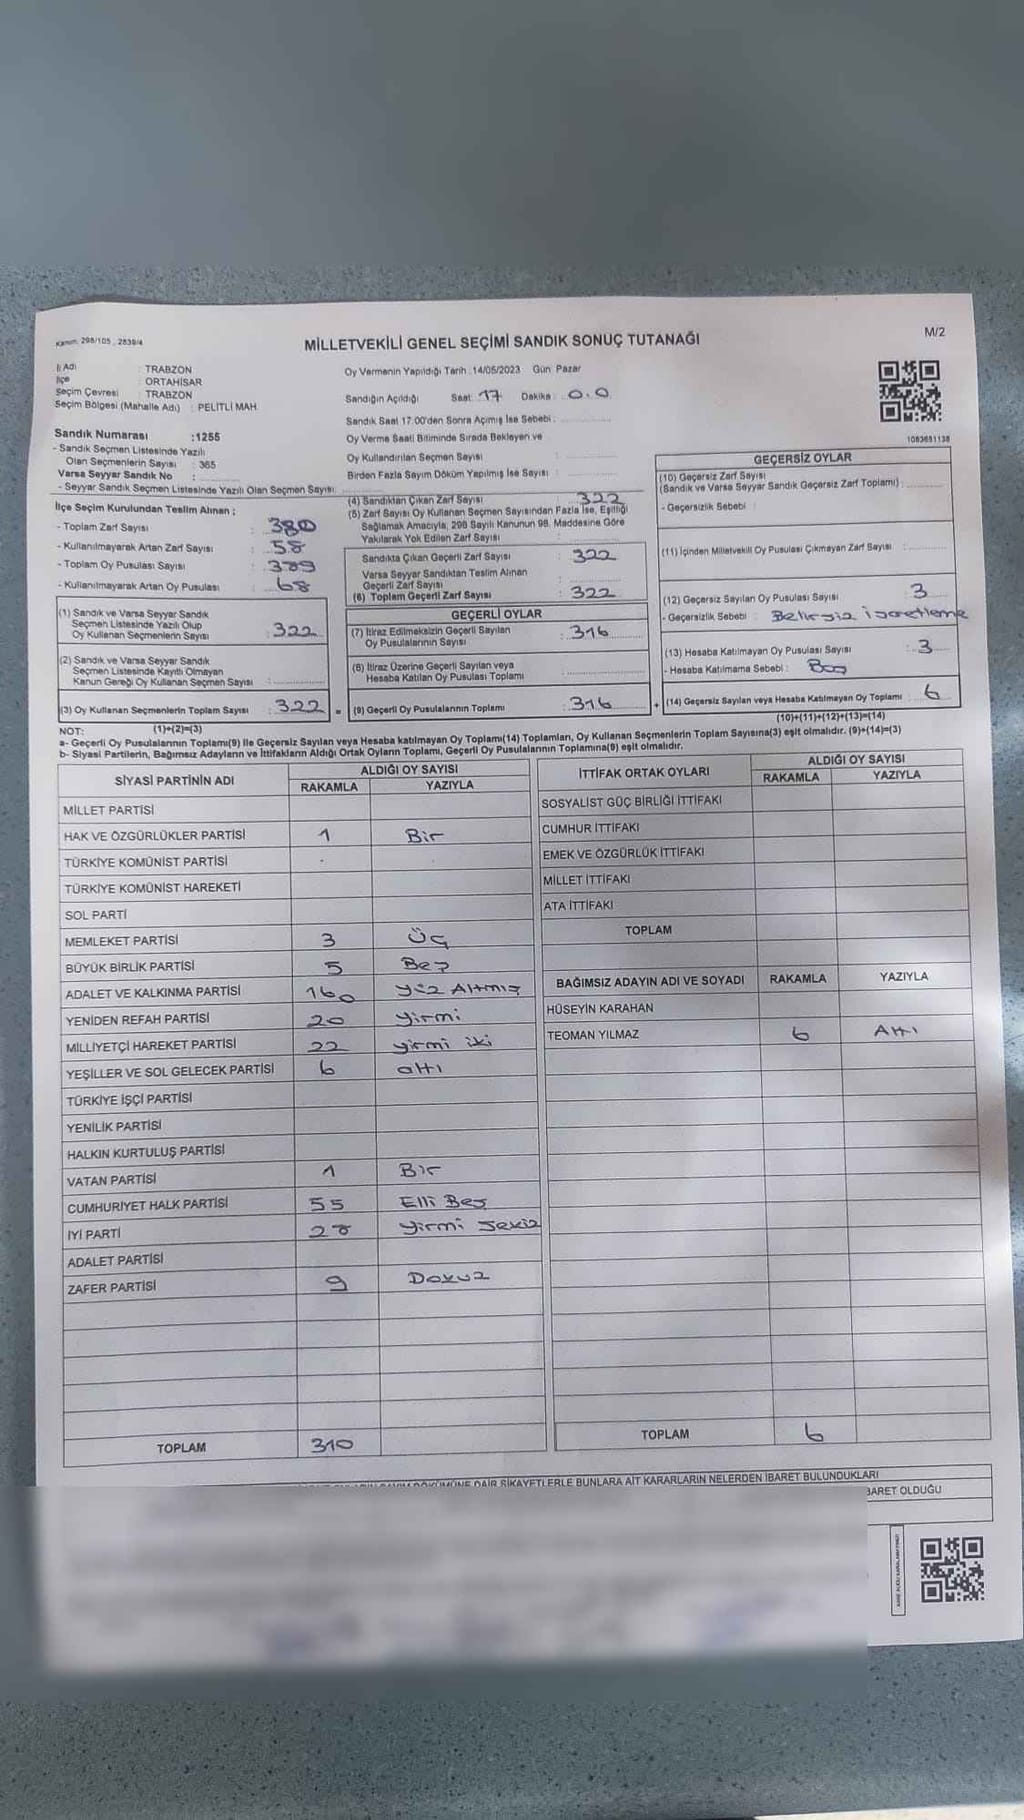 Kanun: 298/105 , 2839/4
MİLLETVEKİLİ GENEL SEÇİMİ SANDIK SONUÇ TUTANAĞI
M/2
İl Adı : TRABZON
İlçe : ORTAHİSAR
Seçim Çevresi : TRABZON
Seçim Bölgesi (Mahalle Adı) : PELİTLİ MAH.
Oy Vermenin Yapıldığı Tarih :14/05/2023 Gün: Pazar
Sandığın Açıldığı Saat: 17 Dakika : 0.0
Sandık Saat 17.00'den Sonra Açımış İse Sebebi :
Oy Verme Saati Bitiminde Sırada Bekleyen ve
Oy Kullandırılan Seçmen Sayısı :
Birden Fazla Sayım Döküm Yapılmış İse Sayısı :
1083651138
Sandık Numarası :1255
- Sandık Seçmen Listesinde Yazılı
Olan Seçmenlerin Sayısı : 365
Varsa Seyyar Sandık No :
- Seyyar Sandık Seçmen Listesinde Yazılı Olan Seçmen Sayısı:
İlçe Seçim Kurulundan Teslim Alınan ;
- Toplam Zarf Sayısı : 380
- Kullanılmayarak Artan Zarf Sayısı : 58
- Toplam Oy Pusulası Sayısı : 389
- Kullanılmayarak Artan Oy Pusulası : 68
(1) Sandık ve Varsa Seyyar Sandık
Seçmen Listesinde Yazılı Olup
Oy Kullanan Seçmenlerin Sayısı : 322
(2) Sandık ve Varsa Seyyar Sandık
Seçmen Listesinde Kayıtlı Olmayan
Kanun Gereği Oy Kullanan Seçmen Sayısı :
(3) Oy Kullanan Seçmenlerin Toplam Sayısı : 322 =
(1)+(2)=(3)
(4) Sandıktan Çıkan Zarf Sayısı : 322
(5) Zarf Sayısı Oy Kullanan Seçmen Sayısından Fazla İse, Eşitliği
Sağlamak Amacıyla, 298 Sayılı Kanunun 98. Maddesine Göre
Yakılarak Yok Edilen Zarf Sayısı :
Sandıkta Çıkan Geçerli Zarf Sayısı : 322
Varsa Seyyar Sandıktan Teslim Alınan
Geçerli Zarf Sayısı :
(6) Toplam Geçerli Zarf Sayısı : 322
GEÇERLİ OYLAR
(7) İtiraz Edilmeksizin Geçerli Sayılan
Oy Pusulalarının Sayısı : 316
(8) İtiraz Üzerine Geçerli Sayılan veya
Hesaba Katılan Oy Pusulası Toplamı :
(9) Geçerli Oy Pusulalarının Toplamı : 316 +
GEÇERSİZ OYLAR
(10) Geçersiz Zarf Sayısı
(Sandık ve Varsa Seyyar Sandık Geçersiz Zarf Toplamı) :
- Geçersizlik Sebebi :
(11) İçinden Milletvekili Oy Pusulası Çıkmayan Zarf Sayısı :
(12) Geçersiz Sayılan Oy Pusulası Sayısı : 3
- Geçersizlik Sebebi : Belirsiz İşaretleme
(13) Hesaba Katılmayan Oy Pusulası Sayısı : 3
- Hesaba Katılmama Sebebi : Boş
(14) Geçersiz Sayılan veya Hesaba Katılmayan Oy Toplamı : 6
(10)+(11)+(12)+(13)=(14)
NOT:
a- Geçerli Oy Pusulalarının Toplamı(9) ile Geçersiz Sayılan veya Hesaba katılmayan Oy Toplamı(14) Toplamları, Oy Kullanan Seçmenlerin Toplam Sayısına(3) eşit olmalıdır. (9)+(14)=(3)
b- Siyasi Partilerin, Bağımsız Adayların ve İttifakların Aldığı Ortak Oyların Toplamı, Geçerli Oy Pusulalarının Toplamına(9) eşit olmalıdır.
SİYASİ PARTİNİN ADI ALDIĞI OY SAYISI
RAKAMLA YAZIYLA
MİLLET PARTİSİ
HAK VE ÖZGÜRLÜKLER PARTİSİ 1 Bir
TÜRKİYE KOMÜNİST PARTİSİ
TÜRKİYE KOMÜNİST HAREKETİ
SOL PARTİ
MEMLEKET PARTİSİ 3 Üç
BÜYÜK BİRLİK PARTİSİ 5 Beş
ADALET VE KALKINMA PARTİSİ 160 Yüz Altmış
YENİDEN REFAH PARTİSİ 20 Yirmi
MİLLİYETÇİ HAREKET PARTİSİ 22 yirmi iki
YEŞİLLER VE SOL GELECEK PARTİSİ 6 altı
TÜRKİYE İŞÇİ PARTİSİ
YENİLİK PARTİSİ
HALKIN KURTULUŞ PARTİSİ
VATAN PARTİSİ 1 Bir
CUMHURİYET HALK PARTİSİ 55 Elli Beş
İYİ PARTİ 28 Yirmi Sekiz
ADALET PARTİSİ
ZAFER PARTİSİ 9 Dokuz
TOPLAM 310
İTTİFAK ORTAK OYLARI ALDIĞI OY SAYISI
RAKAMLA YAZIYLA
SOSYALİST GÜÇ BİRLİĞİ İTTİFAKI
CUMHUR İTTİFAKI
EMEK VE ÖZGÜRLÜK İTTİFAKI
MİLLET İTTİFAKI
ATA İTTİFAKI
TOPLAM
BAĞIMSIZ ADAYIN ADI VE SOYADI RAKAMLA YAZIYLA
HÜSEYİN KARAHAN
TEOMAN YILMAZ 6 Altı
TOPLAM 6
DAİR ŞİKAYETLERLE BUNLARA AİT KARARLARIN NELERDEN İBARET BULUNDUKLARI
BARET OLDUĞU